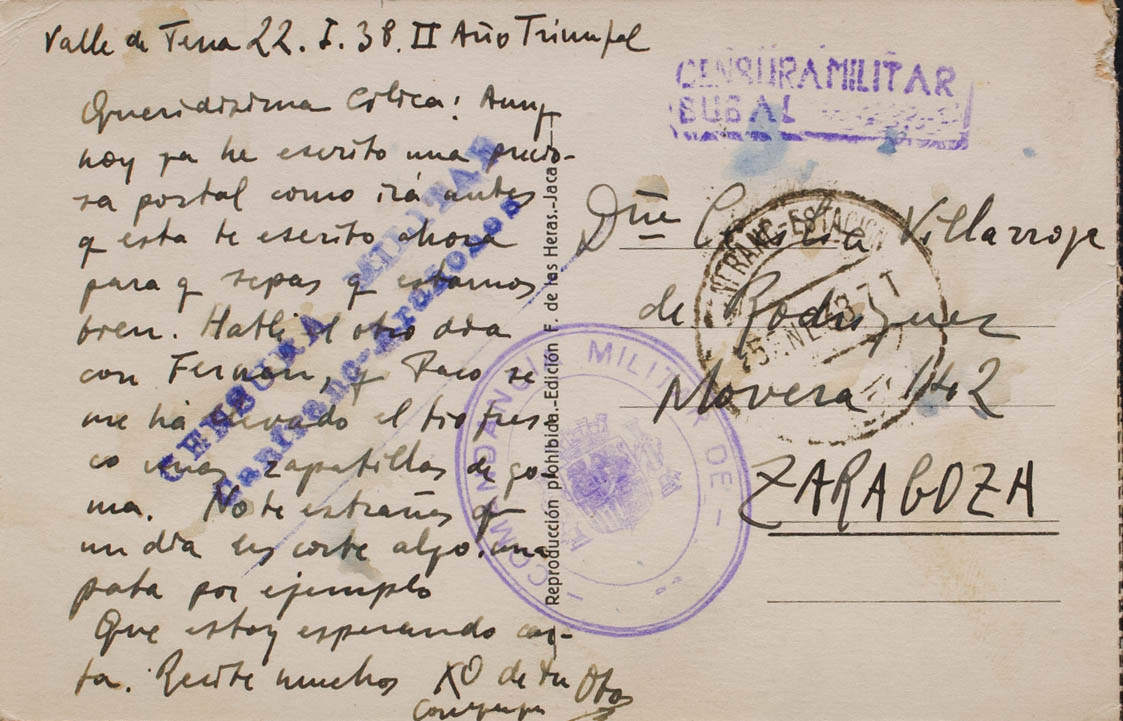 Valle de Tena 22. I. 38. II Año Triunfal
Queridísima Cilica: Aunq
hoy ya he escrito una precio-
sa portal como irá antes
q esta te escrito ahora
para q sepas q estamos
bien. Hablé el otro día
con Fernan, y Paco se
me ha llevado el tio fres-
co unas zapatillas de go-
ma. No te estrañes q
un día les corte algo, una
pata por ejemplo
Que estoy esperando car-
ta. Recibe muchos XO de tu
CENSURA MILITAR
Canfranc-Arañones
Reproducción prohibida.-Edición F. de las Heras.-Jaca
CENSURA MILITAR
BUBAL
COMANDANCIA MILITAR DE
ANFRANC-ESTACION
25 ENE 38 7T
Dñª Cecilia Villarroya
de Rodriguez
Movera 142
ZARAGOZA